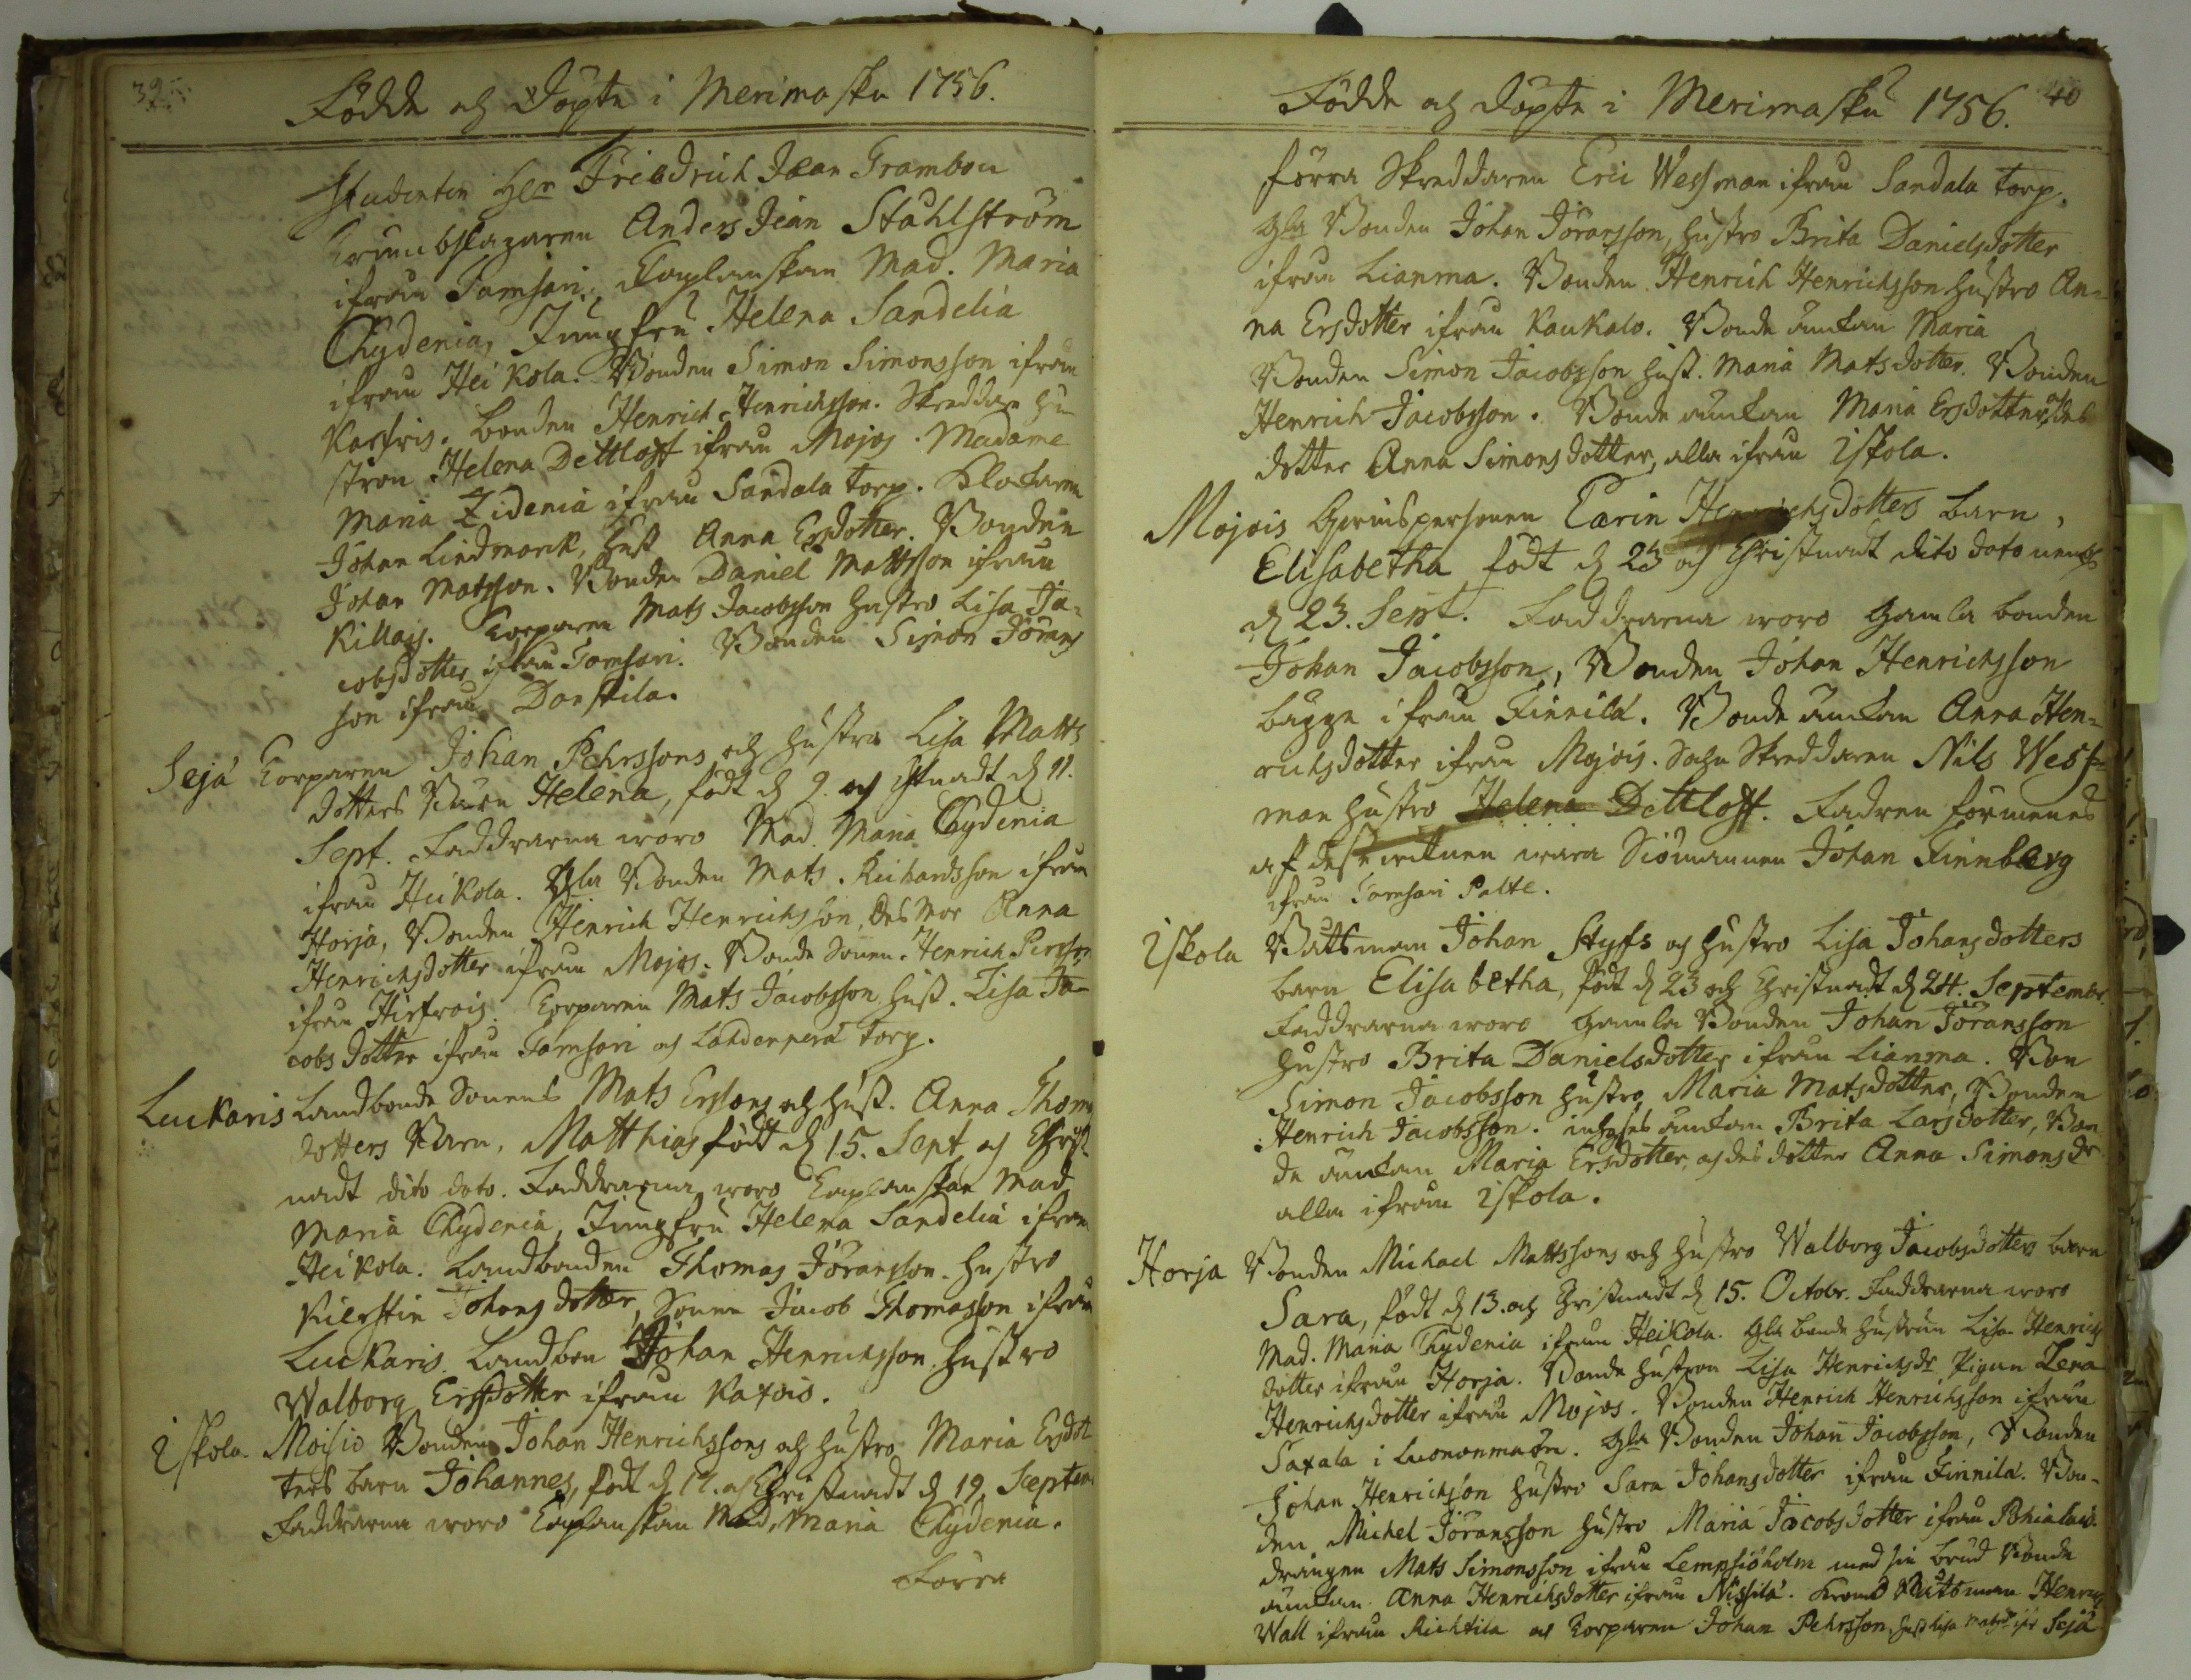 39
Födde och Döpte i Merimasku 1756.
Studenten Herr Friedrich Jean Grambou
Trumbslagaren Anders Jean Ståhlström
ifrån Tamsari. Caplanskan Mad. Maria
Chydenia, Jungfru Helena Sandelia
ifrån Heikola. Bonden Simon Simonsson ifrån
Karfris. Bonden Henrich Henrichsson. Skreddare Hu-
stron Helena Dettloff ifrån Mojos. Madame
Maria Zidenia ifrån Sandala torp. Klockaren
Johan Lindmarck, Hust Anna Ersdotter. Bonden
Johan Matsson. Bonden Daniel Mattsson ifrån
Killais. Torparen Mats Jacobsson Hustro Lisa Ja-
cobsdotter ifrån Tamsari. Bonden Simon Jörans
son ifrån Danskila.
Sejä Torparen Johan Pehrssons och Hustro Lisa Matts
dotters Barn Helena, födt d 9. och Chrisnadt d 11.
Sept. Faddrarna woro Mad. Maria Chydenia
ifrån Heikola. Gla Bonden Mats Richardsson ifrån
Horja, Bonden Henrich Henrichsson, Des Mor Anna
Henrichsdotter ifrån Mojos. Bonde Sonen Henrich Persson
ifrån Hirfrois. Torparen Mats Jacobsson Hust. Lisa Ja-
cobs dotter ifrån Tamsari och Lahdenperä torp.
Luckaris Landbonde Sonens Mats Erssons och Hust. Anna Thoms
dotters Barn, Matthias födt d 15. Sept och Christ-
nadt dito dato. Faddrarna woro Caplanskan Mad
Maria Chydenia, Jungfru Helena Sandelia ifrån
Heikola. Landbonden Thomas Jöransson Hustro
Kierstin Johans dotter, Sonen Jacob Thomasson ifrån
Luckaris. Landbon Johan Henrichsson Hustro
Walborg Ersdotter ifrån Katois.
Iskola. Moisio Bonden Johan Henrichssons och Hustro Maria Ersdot
ters barn Johannes, födt d 17. och Christnadt d 19. Septem
Faddrarna woro Caplanskan Mad. Maria Chydenia.
Förra
40
Födde och Döpte i Merimasku 1756.
förra Skreddaren Eric Wessman ifrån Sandala torp.
Gla Bonden Johan Jöransson, Hustro Brita Danielsdotter
ifrån Lianma. Bonden Henrich Henrichsson Hustro An-
na Ersdotter ifrån Kaukalo. Bonde änckan Maria
Bonden Simon Jacobsson Hust. Maria Matsdotter. Bonden
Henrich Jacobsson. Bonde änckan Maria Ersdotter, och des
dotter Anna Simonsdotter, alla ifrån Iskola.
Mojois Qwinspersonen Carin Henrichsdotters barn,
Elisabetha födt d 23 och Christnadt dito dato
d 23. Sept. Faddrarna woro Gamla bonden
Johan Jacobsson, Bonden Johan Henrichsson
bägge ifrån Finnilä. Bonde änckan Anna Hen-
richsdotter ifrån Mojois. Sochn Skreddaren Nils Wess-
man Hustro Helena Dettloff. Fadren förmenes
af desse wittnen wara Siömannen Johan Finnberg
ifrån Tamsari Palte.
Iskola Båtsman Johan Styfs och Hustro Lisa Johansdotters
barn Elisabetha, födt d 23 och Christnadt d 24. Septembr.
Faddrarna woro Gamla Bonden Johan Jöransson
Hustro Brita Danielsdotter ifrån Lianma. Bon
Simon Jacobsson Hustro Maria Matsdotter, Bonden
Henrich Jacobsson. inhyses änckan Brita Larsdotter, Bon
de änckan Maria Ersdotter, och des dotter Anna Simonsdr
alla ifrån Iskola.
Horja Bonden Michael Mattssons och Hustro Walborg Jacobsdotters barn
Sara, födt d 13. och Christnadt d 15. Octobr. Faddrarna woro
Mad. Maria Chydenia ifrån Heikola. Gla bonde Hustrun Lisa Henrichs
dotter ifrån Horja. Bonde Hustron Lisa Henrichsdr Pigan Lena
Henrichsdotter ifrån Mojos. Bonden Henrich Henrichsson ifrån
Saxala i Luononmaön. Gla Bonden Johan Jacobsson, Bonden
Johan Henrichson Hustro Sara Johansdotter ifrån Finnilä. Bon-
den Michel Jöransson Hustro Maria Jacobsdotter ifrån
drängen Mats Simonsson ifrån Lempsiöholm med sin brud Bonde
änckan Anna Henrichsdotter ifrån Nissilä. Krono Båtsman Henrich
Wall ifrån Richtila och Torparen Johan Pehrsson, Hust Lisa Matsdr ifr Sejä